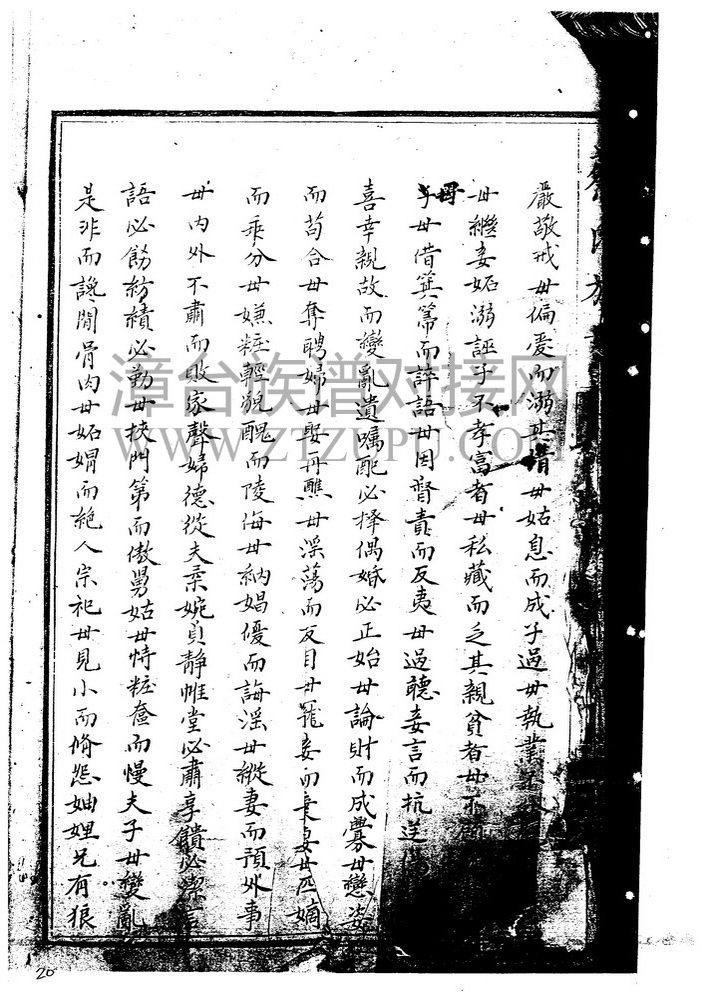 嚴敬戒毋偏愛而溺其情毋姑息而成子過毋執業
毋繼妾妬溺誣子不孝富者毋私藏而乏其親貧者毋不顧
子毋借箕箒而誶語毋因督責而反夷毋過聽妾言而抗逆
喜幸親故而變亂遺囑配必擇偶婚必正始毋論財而成釁毋戀姿
而苟合毋奪聘婦毋娶再醮毋淫蕩而反目毋寵妾而棄妻毋匹嫡
而乘分毋嫌粧輕貌醜而陵侮毋納娼優而誨淫毋縱妻而預外事
毋內外不肅而敗家聲婦德從夫柔婉貞靜帷堂必肅享饋必潔言
語必飭紡績必勤毋挾門第而傲舅姑毋恃粧奩而慢夫子毋變亂
是非而讒間骨肉毋妬媢而絕人宗祀毋見小而脩怨妯娌兄有狼
漳台族谱对接网
WWW.ZTZUPU.COM
20